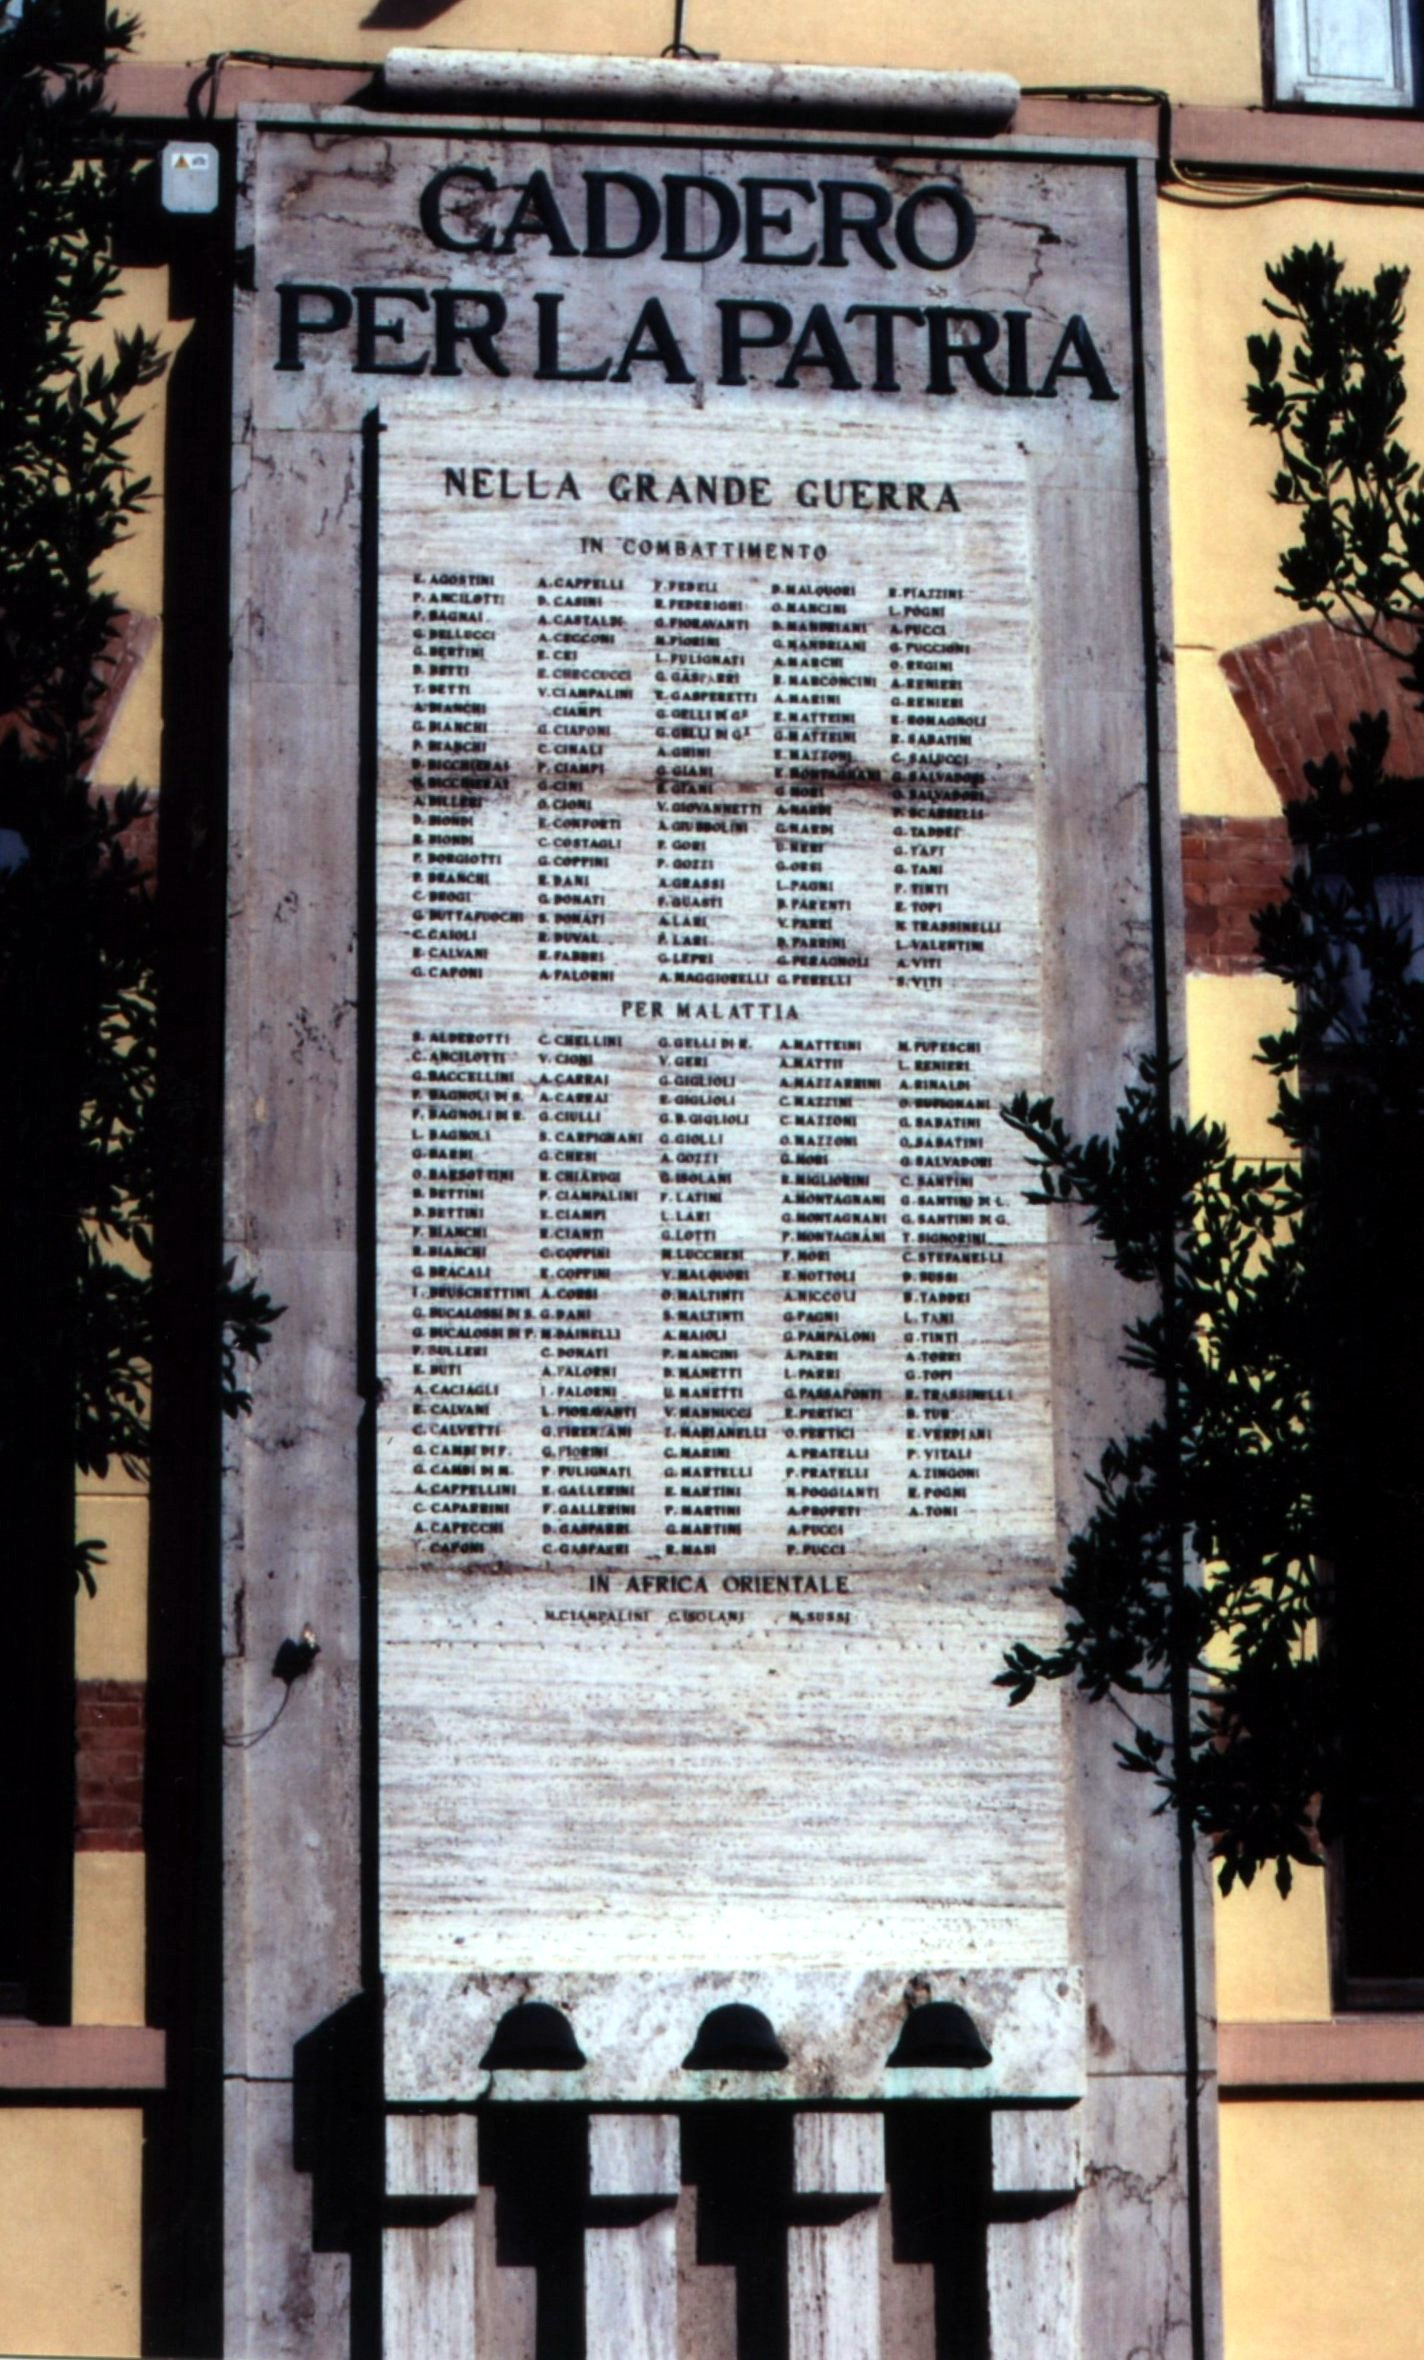 CADDERO
PER LA PATRIA
NELLA GRANDE GUERRA
IN COMBATTIMENTO
E. AGOSTINI A. CAPPELLI F. FEDELI D. MALQUORI R. PIAZZINI
P. ANCILOTTI D. CASINI R. FEDERIGHI O. MANCINI L. POGNI
P. BAGNAI A. CASTALDI G. FIORAVANTI D. MANDRIANI A. PUCCI
G. BELLUCCI A. CECCONI N. FIORINI G. MANDRIANI G. PUCCIONI
G. BERTINI E. CEI L. FULIGNATI A. MARCHI O. REGINI
D. BETTI E. CHECCUCCI G. GASPARRI E. MARCONCINI A. RENIERI
T. BETTI V. CIAMPALINI E. GASPERETTI A. MARINI G. RENIERI
A. BIANCHI CIAMPI G. GELLI DI G. E. MATTEINI E. ROMAGNOLI
G. BIANCHI G. CIAPONI G. GELLI DI G. G. MATTEINI R. SABATINI
P. BIANCHI C. CINALI A. GHINI E. MAZZONI C. SALUCCI
BICCHIERAI P. CIAMPI G. GIANI E. MONTAGNANI G. SALVADORI
BICCHIERAI G. CINI E. GIANI G. MORI O. SALVADORI
A. BILLERI O. CIONI V. GIOVANNETTI A. NARDI P. SCARSELLI
D. BIONDI E. CONFORTI A. GIUBBOLINI G. NARDI G. TADDEI
R. BIONDI C. COSTAGLI F. GORI U. NERI G. TAFI
F. BORGIOTTI G. COPPINI P. GOZZI G. ORSI G. TANI
P. BRANCHI E. DANI A. GRASSI L. PAGNI F. TINTI
C. BROGI G. DONATI F. GUASTI D. PARENTI E. TOPI
G. BUTTAFUOCHI S. DONATI A. LARI V. PARRI N. TRASSINELLI
C. GAIOLI R. DUVAL F. LARI D. PARRINI L. VALENTINI
E. CALVANI E. FABBRI G. LEPRI G. PERAGNOLI A. VITI
G. CAPONI A. FALORNI A. MAGGIORELLI G. PERELLI S. VITI
PER MALATTIA
S. ALDEROTTI C. CHELLINI G. GELLI DI R. A. MATTEINI M. PUPESCHI
C. ANCILOTTI V. CIONI V. GERI A. MATTII L. RENIERI
G. BACCELLINI A. CARRAI G. GIGLIOLI A. MAZZARRINI A. RINALDI
F. BAGNOLI DI S. A. CARRAI E. GIGLIOLI C. MAZZINI O. RUFIGNANI
F. BAGNOLI DI R. G. CIULLI G. B. GIGLIOLI C. MAZZONI G. SABATINI
L. BAGNOLI S. CARPIGNANI G. GIOLLI O. MAZZONI O. SABATINI
G. BARNI G. CHESI A. GOZZI G. MORI G. SALVADORI
O. BARSOTTINI E. CHIARUGI G. ISOLANI R. MIGLIORINI C. SANTINI
B. BETTINI P. CIAMPALINI F. LATINI A. MONTAGNANI G. SANTINI DI L.
D. BETTINI E. CIAMPI L. LARI G. MONTAGNANI G. SANTINI DI G.
F. BIANCHI R. CIANTI G. LOTTI P. MONTAGNANI T. SIGNORINI
R. BIANCHI C. COPPINI M. LUCCHESI F. MORI C. STEFANELLI
G. BRACALI E. COPPINI V. MALQUORI E. NOTTOLI D. SUSSI
I. BRUSCHETTINI A. CORSI O. MALTINTI A. NICCOLI B. TADDEI
G. BUCALOSSI DI S. G. DANI S. MALTINTI G. PAGNI L. TANI
G. BUCALOSSI DI P. M. DAINELLI A. MAIOLI G. PAMPALONI G. TINTI
F. BULLERI C. DONATI P. MANCINI A. PARRI A. TORRI
E. BUTI A. FALORNI D. MANETTI L. PARRI G. TOPI
A. CACIAGLI I. FALORNI U. MANETTI G. PASSAPONTI R. TRASSINELLI
E. CALVANI L. FIORAVANTI V. MANNUCCI E. PERTICI B. TUR
C. CALVETTI G. FIRENZANI Z. MARIANELLI O. PERTICI E. VERDIANI
G. CAMBI DI F. G. FIORINI C. MARINI A. PRATELLI P. VITALI
G. CAMBI DI M. P. FULIGNATI G. MARTELLI P. PRATELLI A. ZINGONI
A. CAPPELLINI E. GALLERINI E. MARTINI N. POGGIANTI E. POGNI
C. CAPARRINI F. GALLERINI F. MARTINI A. PROFETI A. TONI
A. CAPECCHI D. GASPARRI G. MARTINI A. PUCCI
CAPONI C. GASPARRI R. MASI P. PUCCI
IN AFRICA ORIENTALE
M. CIAMPALINI C. ISOLANI M. SUSSI